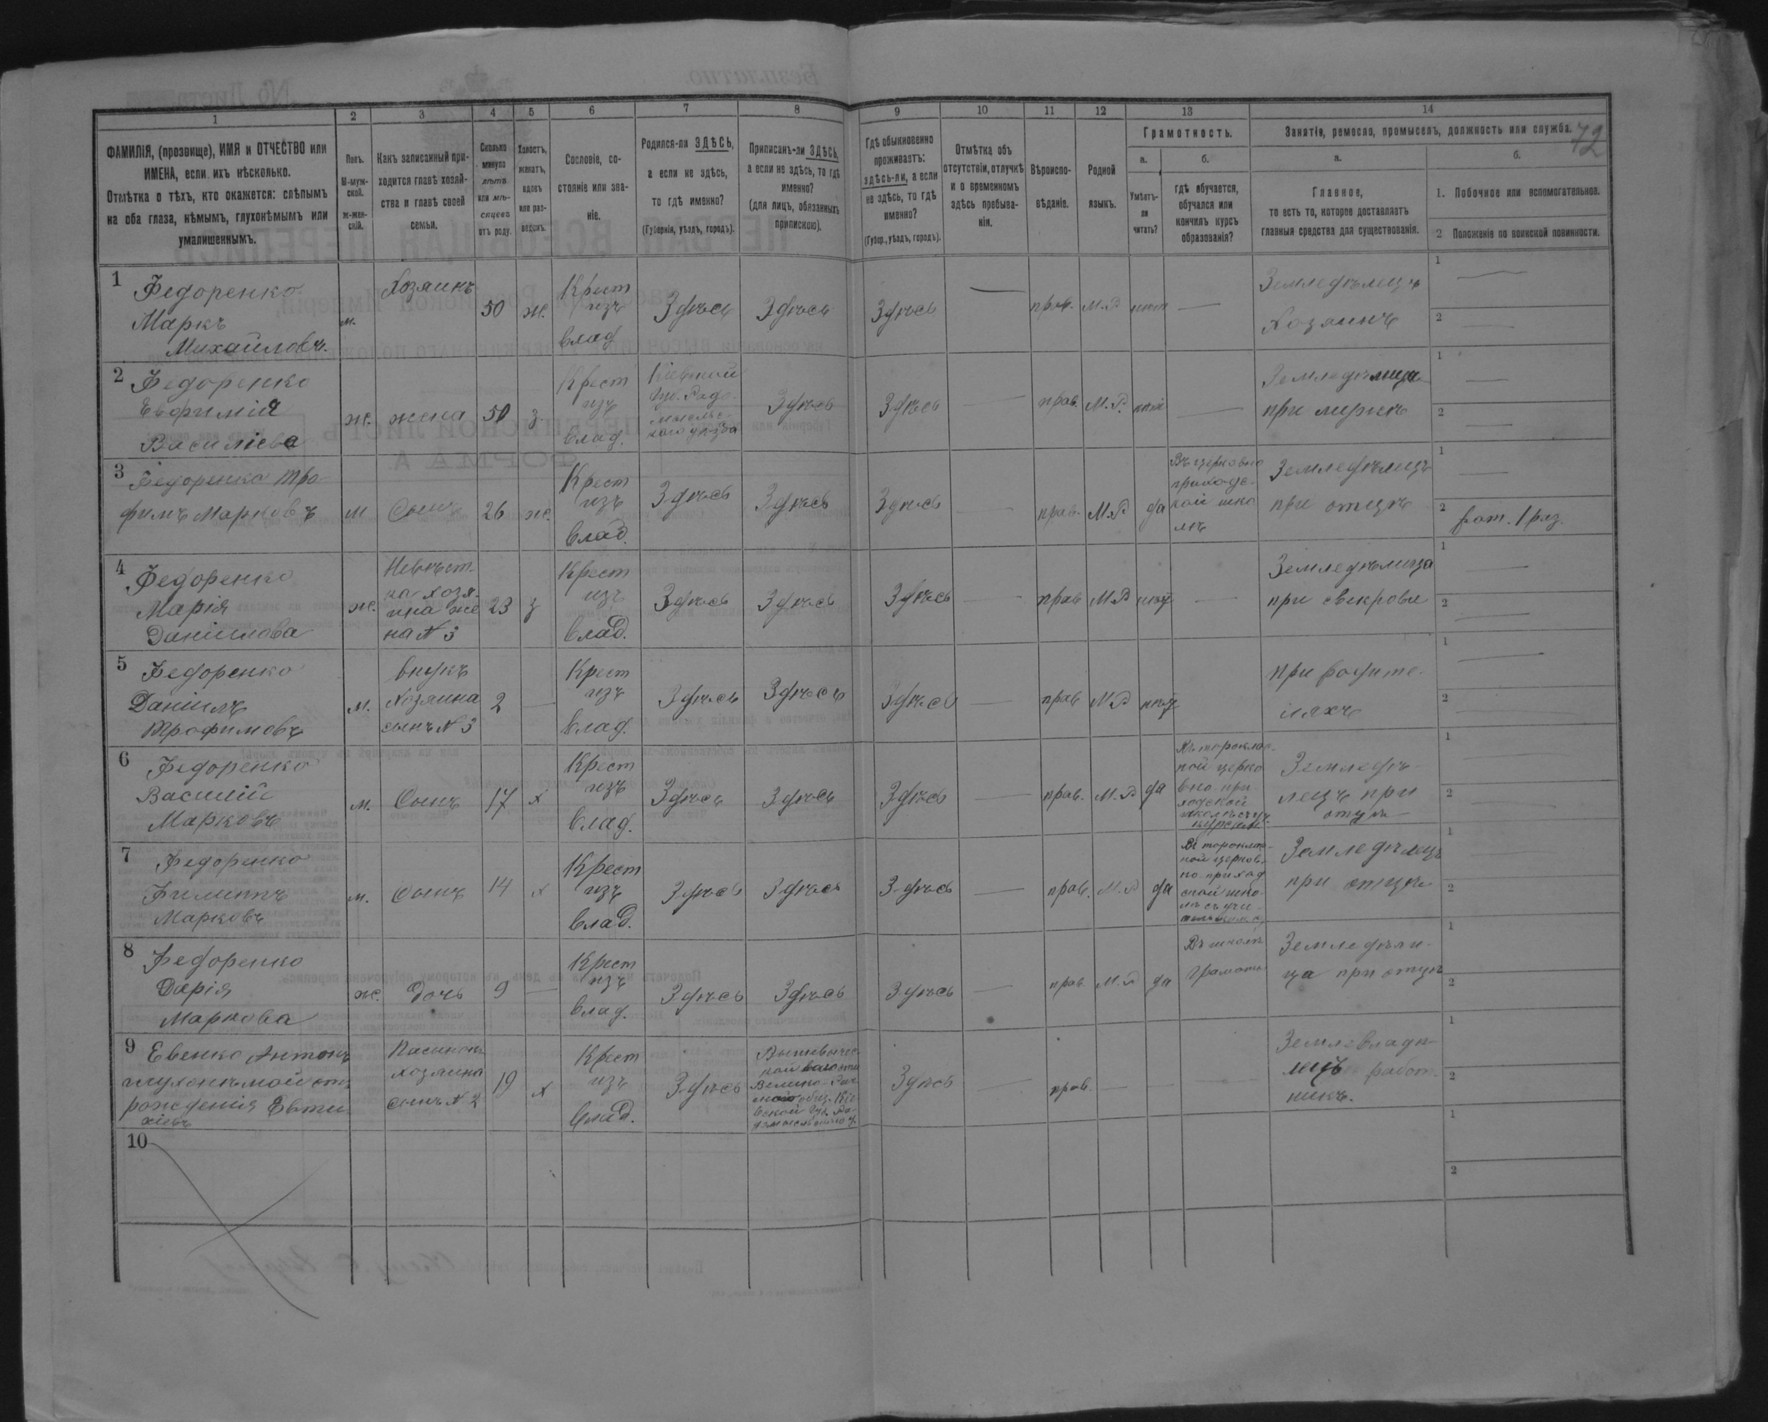 72
1 2 3 4 5 6 7 8 9 10 11 12 13 14
ФАМИЛІЯ, (прозвище), ИМЯ и ОТЧЕСТВО или
ИМЕНА, если ихъ нѣсколько.
Отмѣтка о тѣхъ, кто окажется: слѣпымъ
на оба глаза, нѣмымъ, глухонѣмымъ или
умалишеннымъ.
Полъ.
М-муж-
ской.
Ж-жен-
скій.
Какъ записанный при-
ходится главѣ хозяй-
ства и главѣ своей
семьи.
Сколько
минуло
лѣтъ
или мѣ-
сяцевъ
отъ роду.
Холостъ,
женатъ,
вдовъ
или раз-
веденъ.
Сословіе, со-
стояніе или зва-
ніе.
Родился-ли ЗДѢСЬ,
а если не здѣсь,
то гдѣ именно?
(Губернія, уѣздъ, городъ).
Приписанъ-ли ЗДѢСЬ,
а если не здѣсь, то гдѣ
именно?
(для лицъ, обязанныхъ
припискою).
Гдѣ обыкновенно
проживаетъ:
здѣсь-ли, а если
не здѣсь, то гдѣ
именно?
(Губер., уѣздъ, городъ).
Отмѣтка объ
отсутствіи, отлучкѣ
и о временномъ
здѣсь пребыва-
ніи.
Вѣроиспо-
вѣданіе.
Родной
языкъ.
Грамотность.
а.
Умѣетъ-
ли
читать?
б.
гдѣ обучается,
обучался или
кончилъ курсъ
образованія?
Занятіе, ремесло, промыселъ, должность или служба.
а.
Главное,
то есть то, которое доставляетъ
главныя средства для существованія.
б.
1. Побочное или вспомогательное.
2 Положеніе по воинской повинности.
1 Федоренко
Маркъ
Михайловъ.
м.
Хозяинъ
50 ж.
Крест
изъ
влад
Здѣсь Здѣсь Здѣсь — прав. М.Р. нѣт —
Земледѣлецъ
Хозяинъ
1 —
2 —
2 Федоренко
Евфимія
Васильева
ж. жена 50 з
Крест
изъ
влад.
Кіевской
Губ. Радо-
мысльс-
каго уѣзда
Здѣсь Здѣсь прав. М.Р. нѣт —
Земледѣлица
при мужѣ
1 —
2 —
3 Федоренко Тро
фимъ Марковъ
м Сынъ 26 ж.
Крест
изъ
влад.
Здѣсь Здѣсь Здѣсь прав М.Р да
Въ церковно
приходс-
кой шко
лѣ
Земледѣлецъ
при отцѣ
1 —
2 рат. 1 раз.
4 Федоренко
Марія
Даніилова
ж.
Невѣст
ка хозя-
ина же
на N 3
23 з
Крест
изъ
влад.
Здѣсь Здѣсь Здѣсь — прав М.Р нѣт —
Земледѣлица
при свекрови
1 —
2 —
5 Федоренко
Даніилъ
Трофимовъ
м.
внукъ
Хозяина
сынъ N 3
2 —
Крест
изъ
влад.
Здѣсь Здѣсь Здѣсь — прав М.Р нѣт
при родите-
ляхъ
1 —
2 —
6 Федоренко
Василій
Марковъ
м. Сынъ 17 х
Крест
изъ
влад.
Здѣсь Здѣсь Здѣсь — прав. М.Р да
ной церко
вно-при
ходской
Земледѣ-
лецъ при
отцѣ
1 —
2 —
7 Федоренко
Филиппъ
Марковъ
м. Сынъ 14 х
Крест
изъ
влад.
Здѣсь Здѣсь Здѣсь — прав. М.Р да
ной церков-
но-приход
ской шко-
Земледѣлецъ
при отцѣ
1 —
2 —
8 Федоренко
Дарія
Маркова
ж. Дочь 9 —
Крест
изъ
влад.
Здѣсь Здѣсь Здѣсь — прав М.Р да
Въ школѣ
грамоты
Земледѣли-
ца при отцѣ
1 —
2 —
9 Евенко Антонъ
глухонѣмой отъ
рожденія Евти-
хіевъ
Пасынокъ
хозяина
сынъ N 2
19 х
Крест
изъ
влад.
Здѣсь
кой волости
Здѣсь — прав — — —
Земле-
работ-
никъ.
1 —
2 —
10
1
2